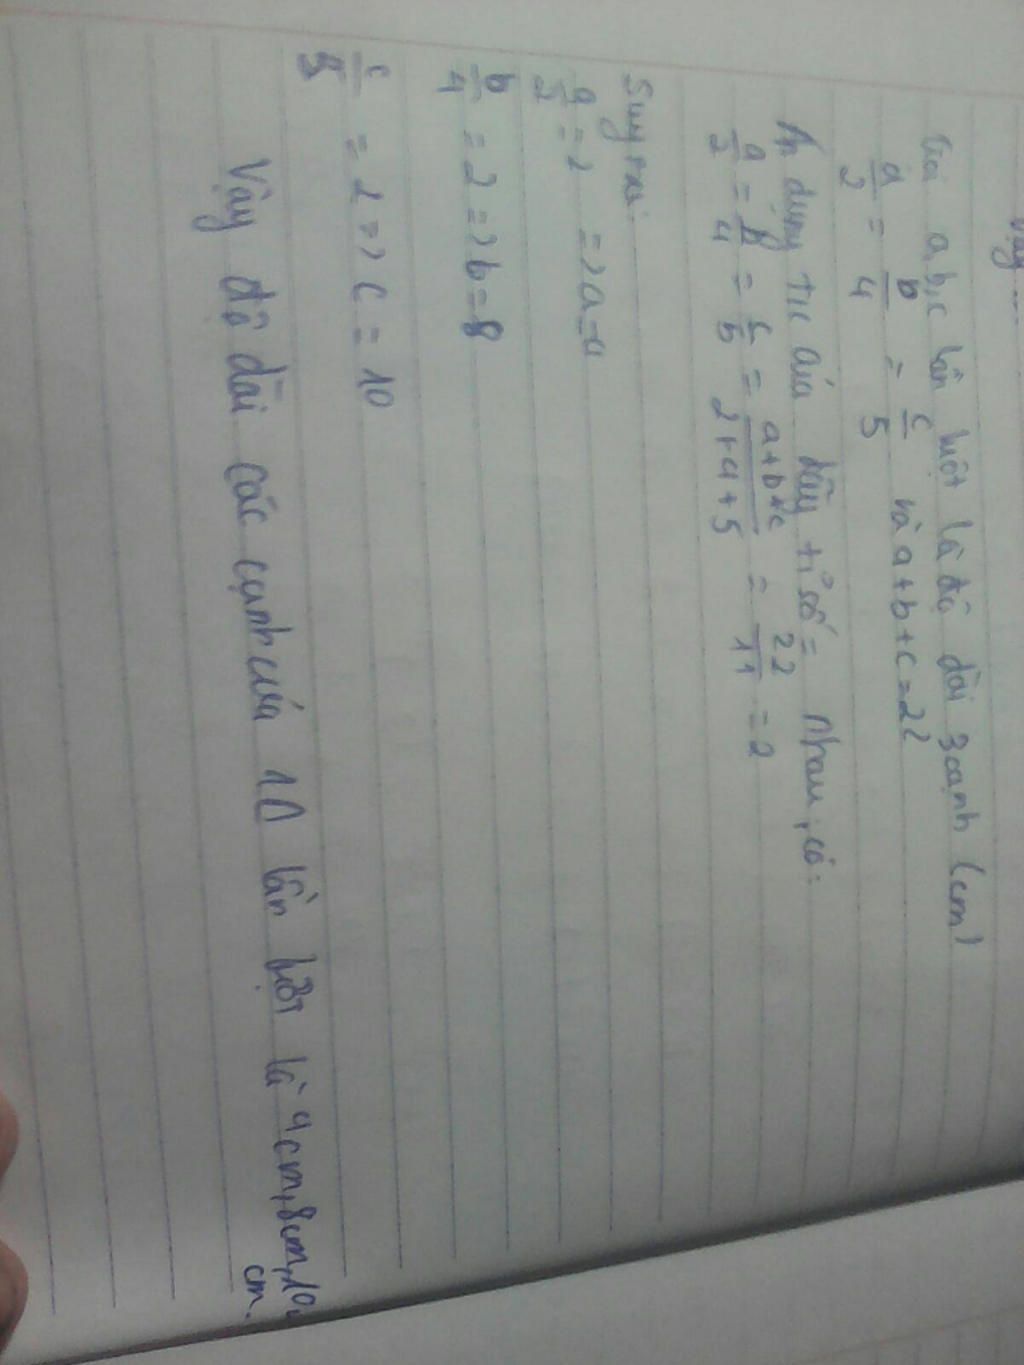 Vậy
Gọi a,b,c lần lượt là độ dài 3 cạnh (cm)
a/2 = b/4 = c/5 và a+b+c=22
Áp dụng t/c của dãy tỉ số = nhau, có:
a/2 = b/4 = c/5 = a+b+c/2+4+5 = 22/11 = 2
Suy ra:
a/2 = 2 => a=4
b/4 = 2 => b=8
c/5 = 2 => c = 10
Vậy độ dài các cạnh của 1Δ lần lượt là 4cm, 8cm, 10
cm.